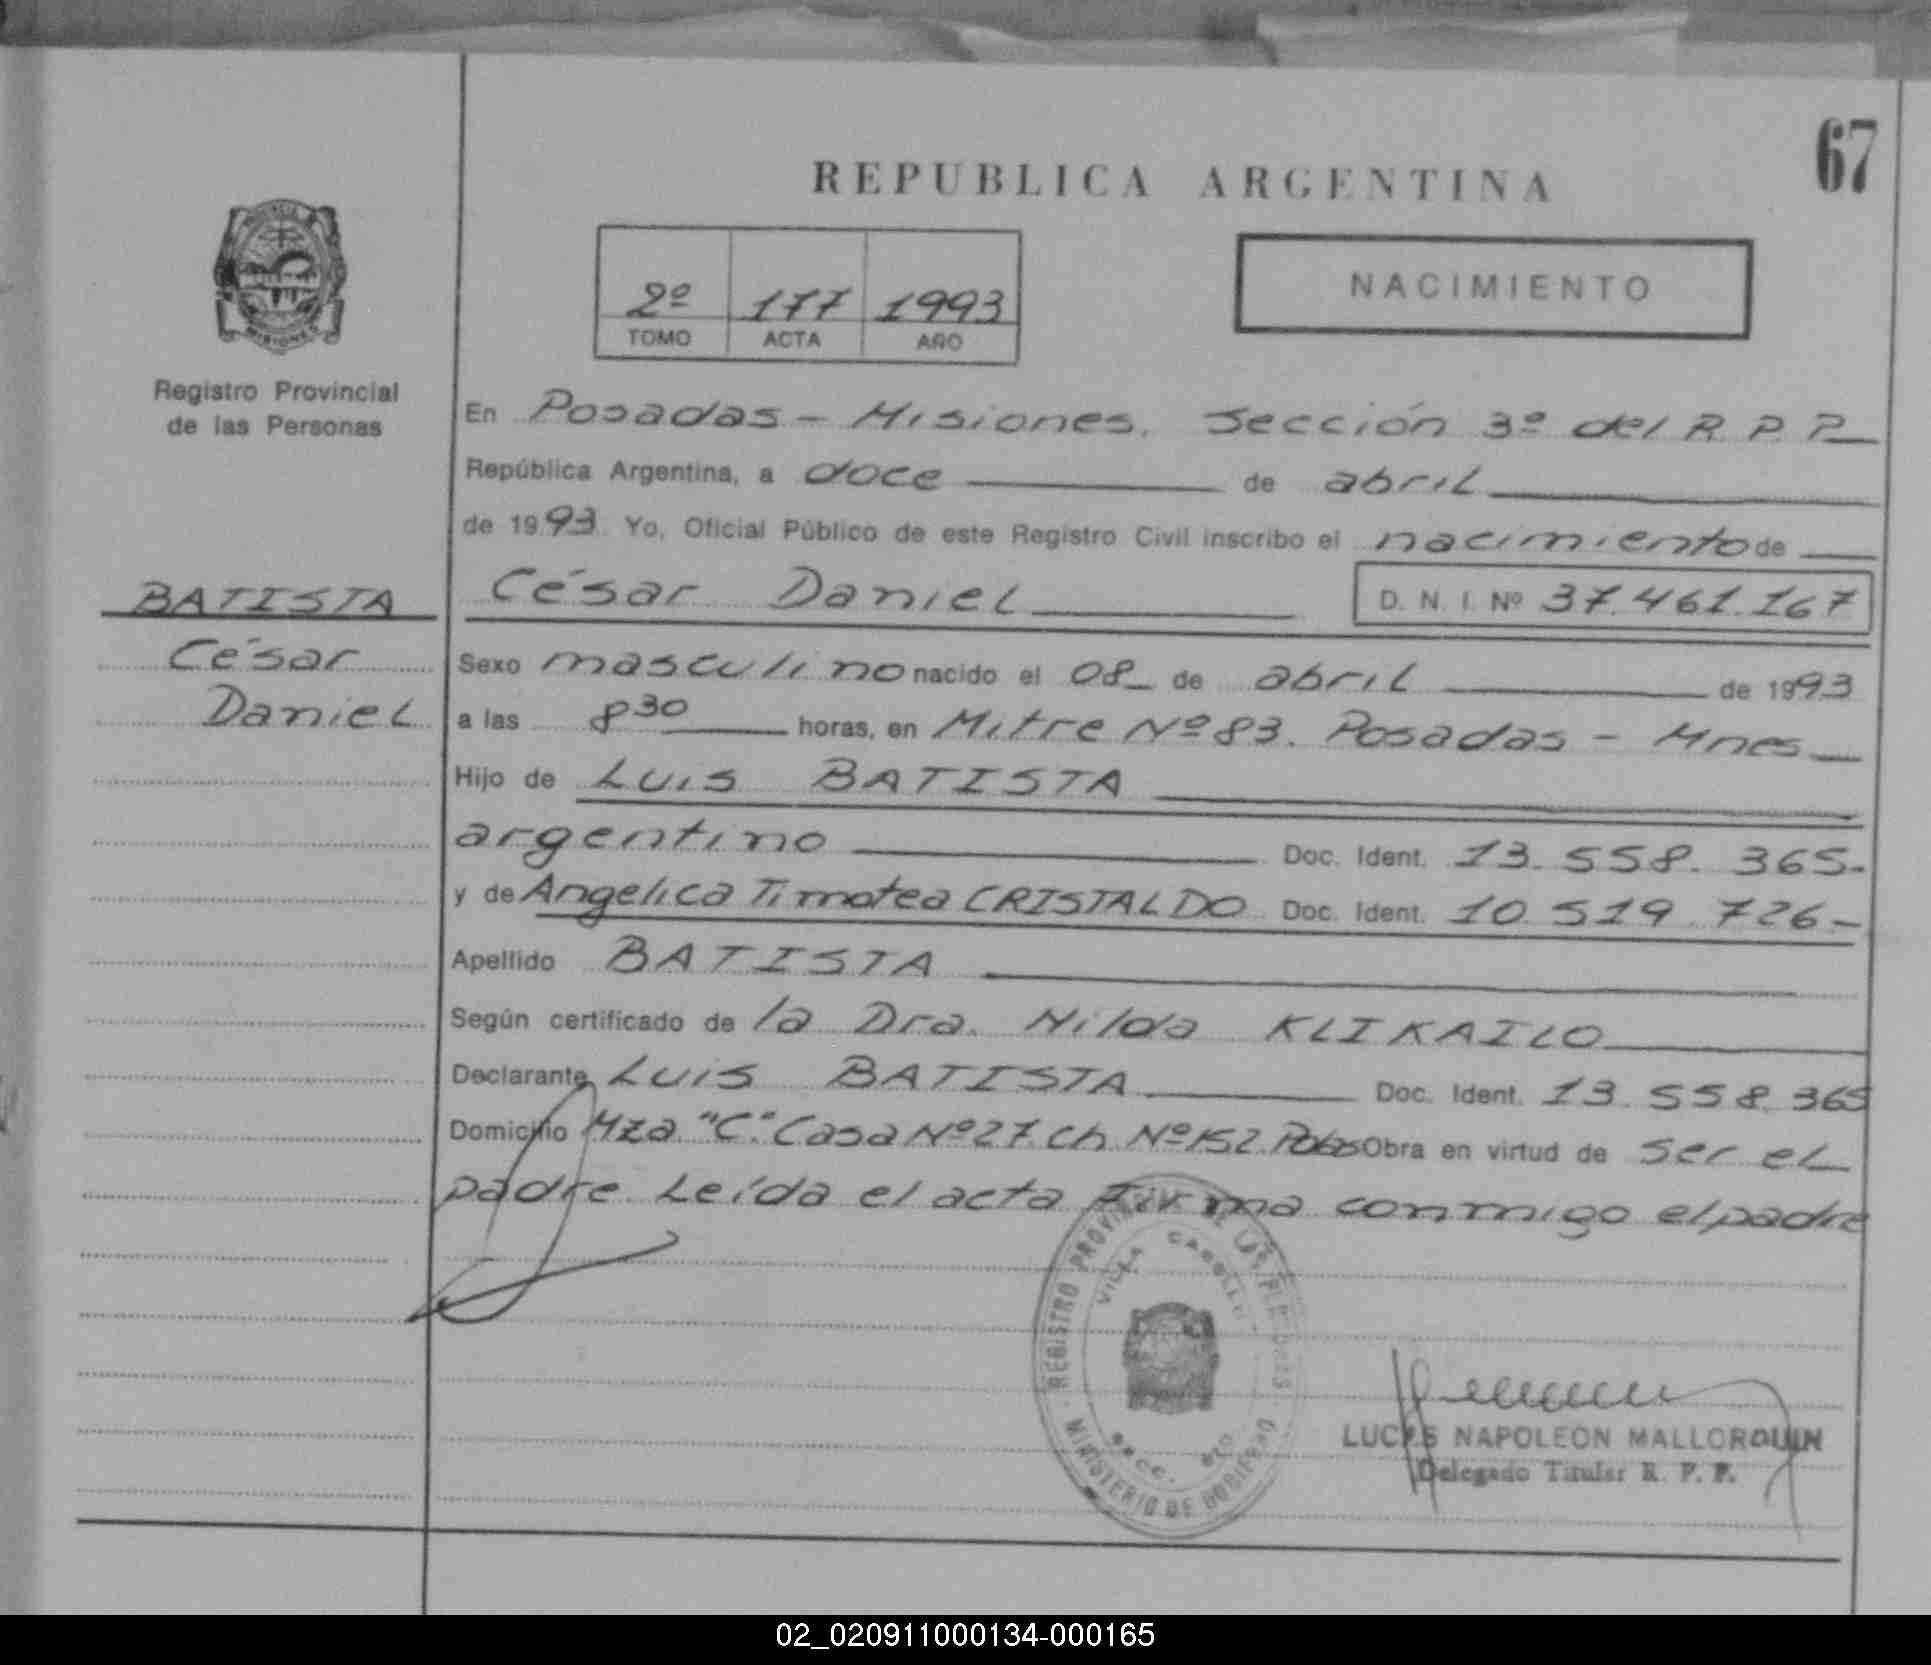 67
REPUBLICA ARGENTINA
PROVINCIA DE MISIONES
2º 177 1993
TOMO ACTA AÑO
NACIMIENTO
Registro Provincial
de las Personas
En Posadas - Misiones. Sección 3º del R. P. P.
República Argentina, a doce de abril
de 1993 Yo, Oficial Público de este Registro Civil inscribo el nacimiento de
BATISTA
César Daniel D. N. I. Nº 37.461.167
César
Daniel
Sexo masculino nacido el 08 de abril de 1993
a las 8 30 horas, en Mitre Nº 83. Posadas - Mnes
Hijo de Luis BATISTA
argentino Doc. Ident. 13.558.365-
y de Angelica Timotea CRISTALDO Doc. Ident. 10.519.726-
Apellido BATISTA
Según certificado de la Dra. Nilda KLIKAILO
Declarante Luis BATISTA Doc. Ident. 13.558.365
Domicilio Mza "C" Casa Nº 27. Ch. Nº 152. Pdas Obra en virtud de ser el
padre. Leída el acta firma conmigo el padre
REGISTRO PROVINCIAL DE LAS PERSONAS
VILLA CABELLO
MINISTERIO DE GOBIERNO
LUCAS NAPOLEON MALLORQUIN
Delegado Titular R. P. P.
02_020911000134-000165